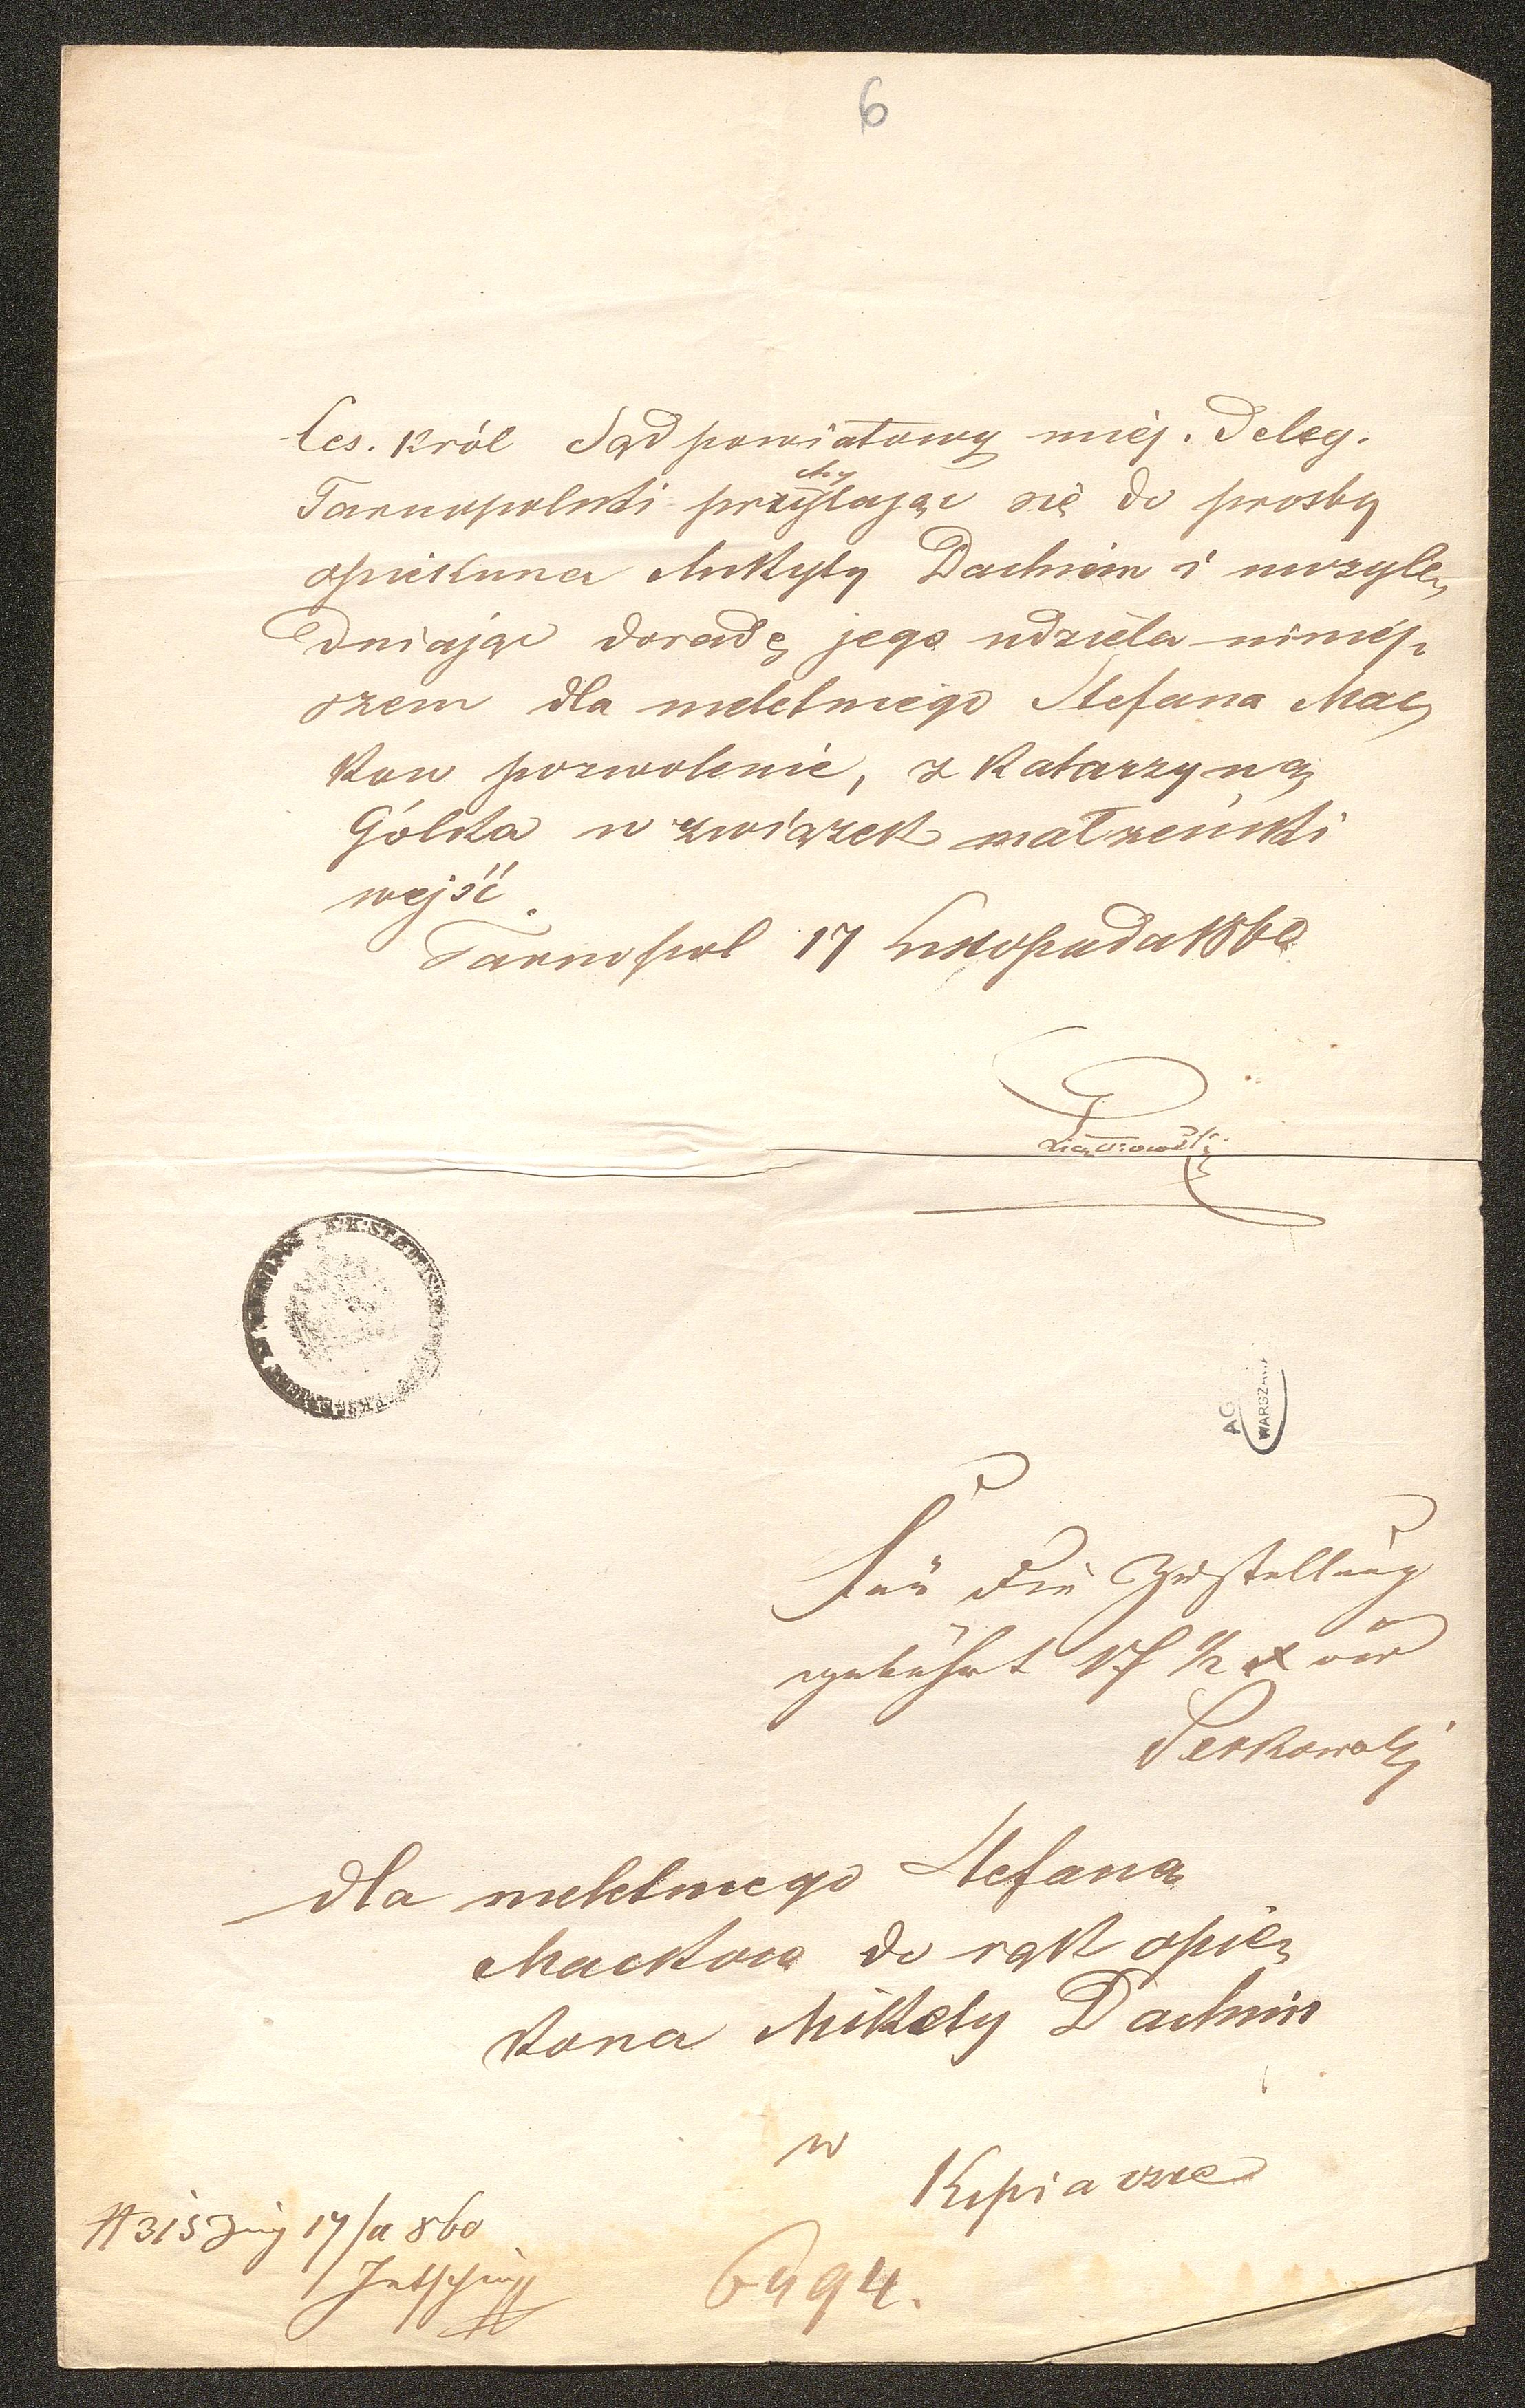 6
Ces. Król Sąd powiatowy miej. Deleg.
Tarnopolski przychylając się do prosby
opiekuna Mikyty Dachnin i uwzglę,
dniając doradę jego udziela niniej,
szem dla nieletniego Stefana Mac,
kow pozwolenie, z Katarzyną
Gólka w związek małżeński
wejść.
Tarnopol 17 Listopada 1860
WARSZAW
AG
Für die Zustellung
gebührt 17 ½ x öW
Serkowski
dla nieletniego Stefana
Mackow do rąk opie,
kona Mikety Dachnin
w
Kupiaczce
315 17/11 860
6494.